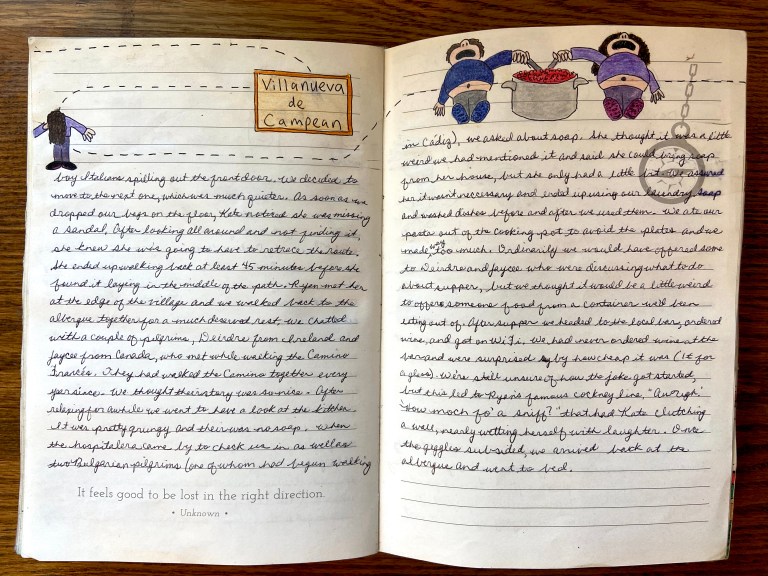 Villanueva
de
Campean
boy Italians spilling out the front door. We decided to
move to the next one, which was much quieter. As soon as we
dropped our bags on the floor, Kate noticed she was missing
a sandal. After looking all around and not finding it,
she knew she was going to have to retrace the route.
She ended up walking back at least 45 minutes before she
found it laying in the middle of the path. Ryan met her
at the edge of the village and we walked back to the
albergue together for a much deserved rest. We chatted
with a couple of pilgrims, Deirdre from Ireland and
Jaycee from Canada, who met while walking the Camino
Francés. They had walked the Camino together every
year since. We thought their story was so nice. After
relaxing for awhile we went to have a look at the kitchen.
It was pretty grungy and their was no soap. When
the hospitalera came by to check us in as well as
two Bulgarian pilgrims (one of whom had begun walking
It feels good to be lost in the right direction.
• Unknown •
in Cádiz), we asked about soap. She thought it was a little
weird we had mentioned it and said she could bring soap
from her house, but she only had a little bit. We assured
her it wasn't necessary and ended up using our laundry soap
and washed dishes before and after we used them. We ate our
pasta out of the cooking pot to avoid the plates and we
made way too much. Ordinarily we would have offered some
to Deirdre and Jaycee who were discussing what to do
about supper, but we thought it would be a little weird
to offer someone food from a container we'd been
eating out of. After supper we headed to the local bar, ordered
wine, and got on WiFi. We had never ordered wine at the
bar and were surprised by how cheap it was (1€ for
a glass). We're still unsure of how the joke got started,
but this led to Ryan's famous cockney line, "Awright.
How much fo' a sniff?" that had Kate clutching
a wall, nearly wetting herself with laughter. Once
the giggles subsided, we arrived back at the
albergue and went to bed.